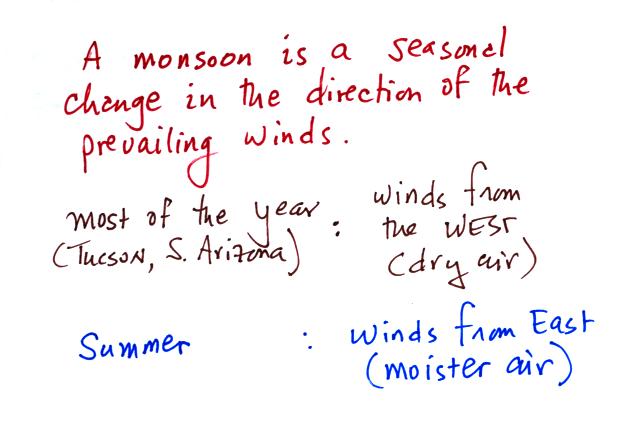 A monsoon is a seasonal
change in the direction of the
prevailing winds.
most of the year : winds from
(Tucson, S. Arizona) the WEST
(dry air)
Summer : winds from East
(moister air)